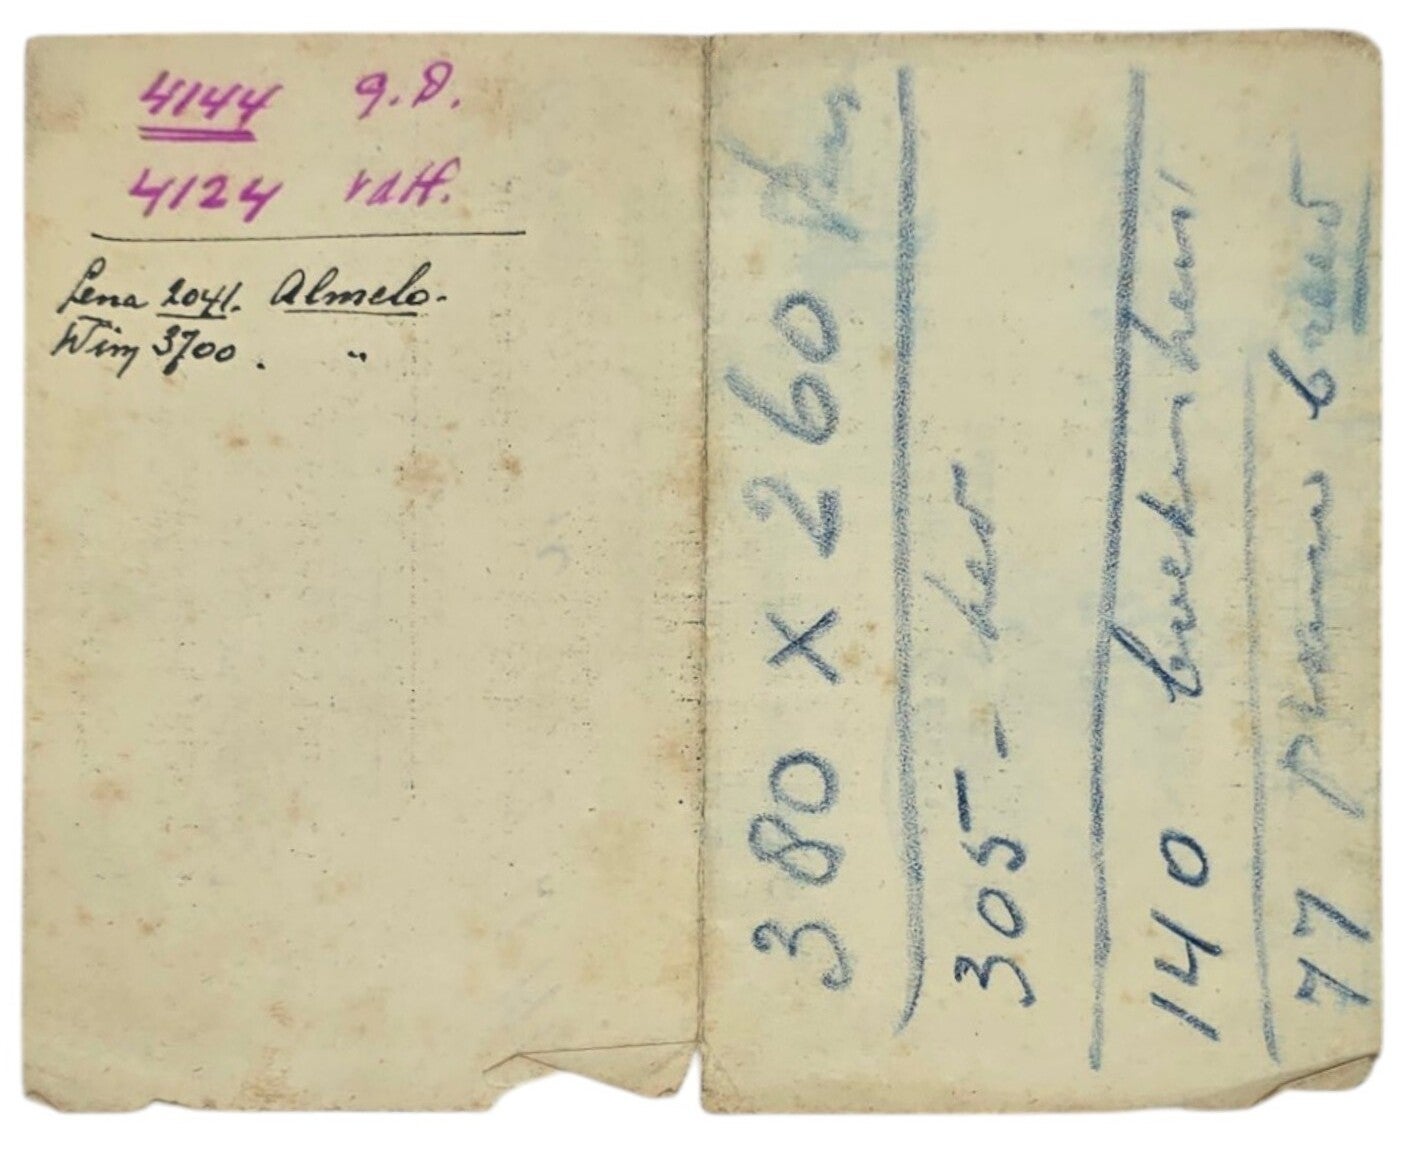 4144 g.D.
4124 vdH.
Lena 2041. Almelo.
Wim 3700. "
380 x 260
305 -
140
77 breed